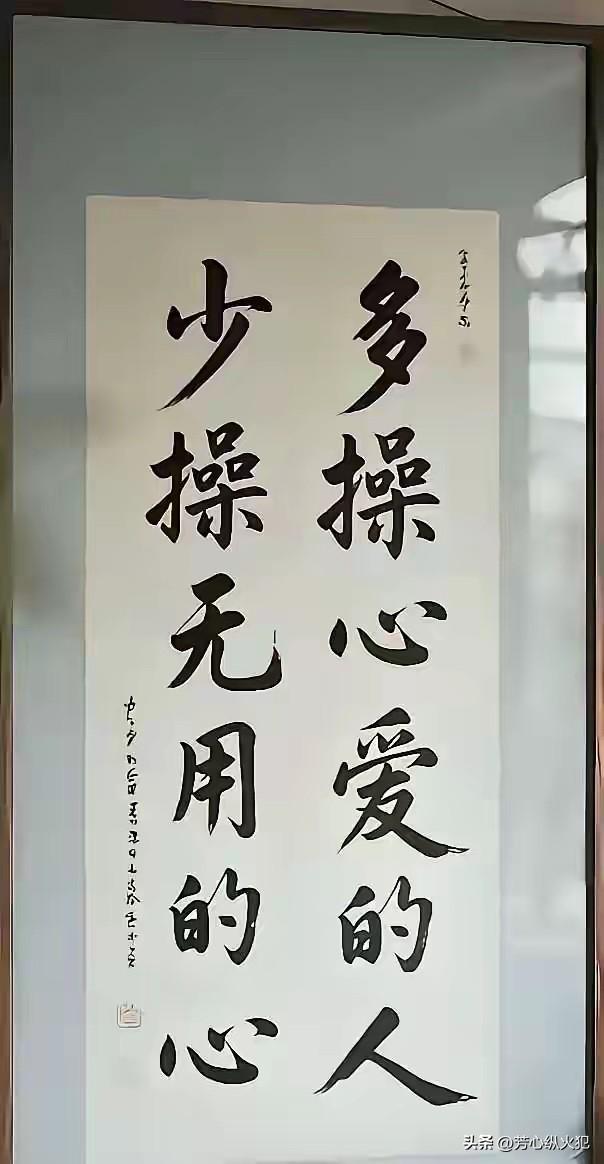 多操心爱的人
少操无用的心
头条 @芳心纵火犯